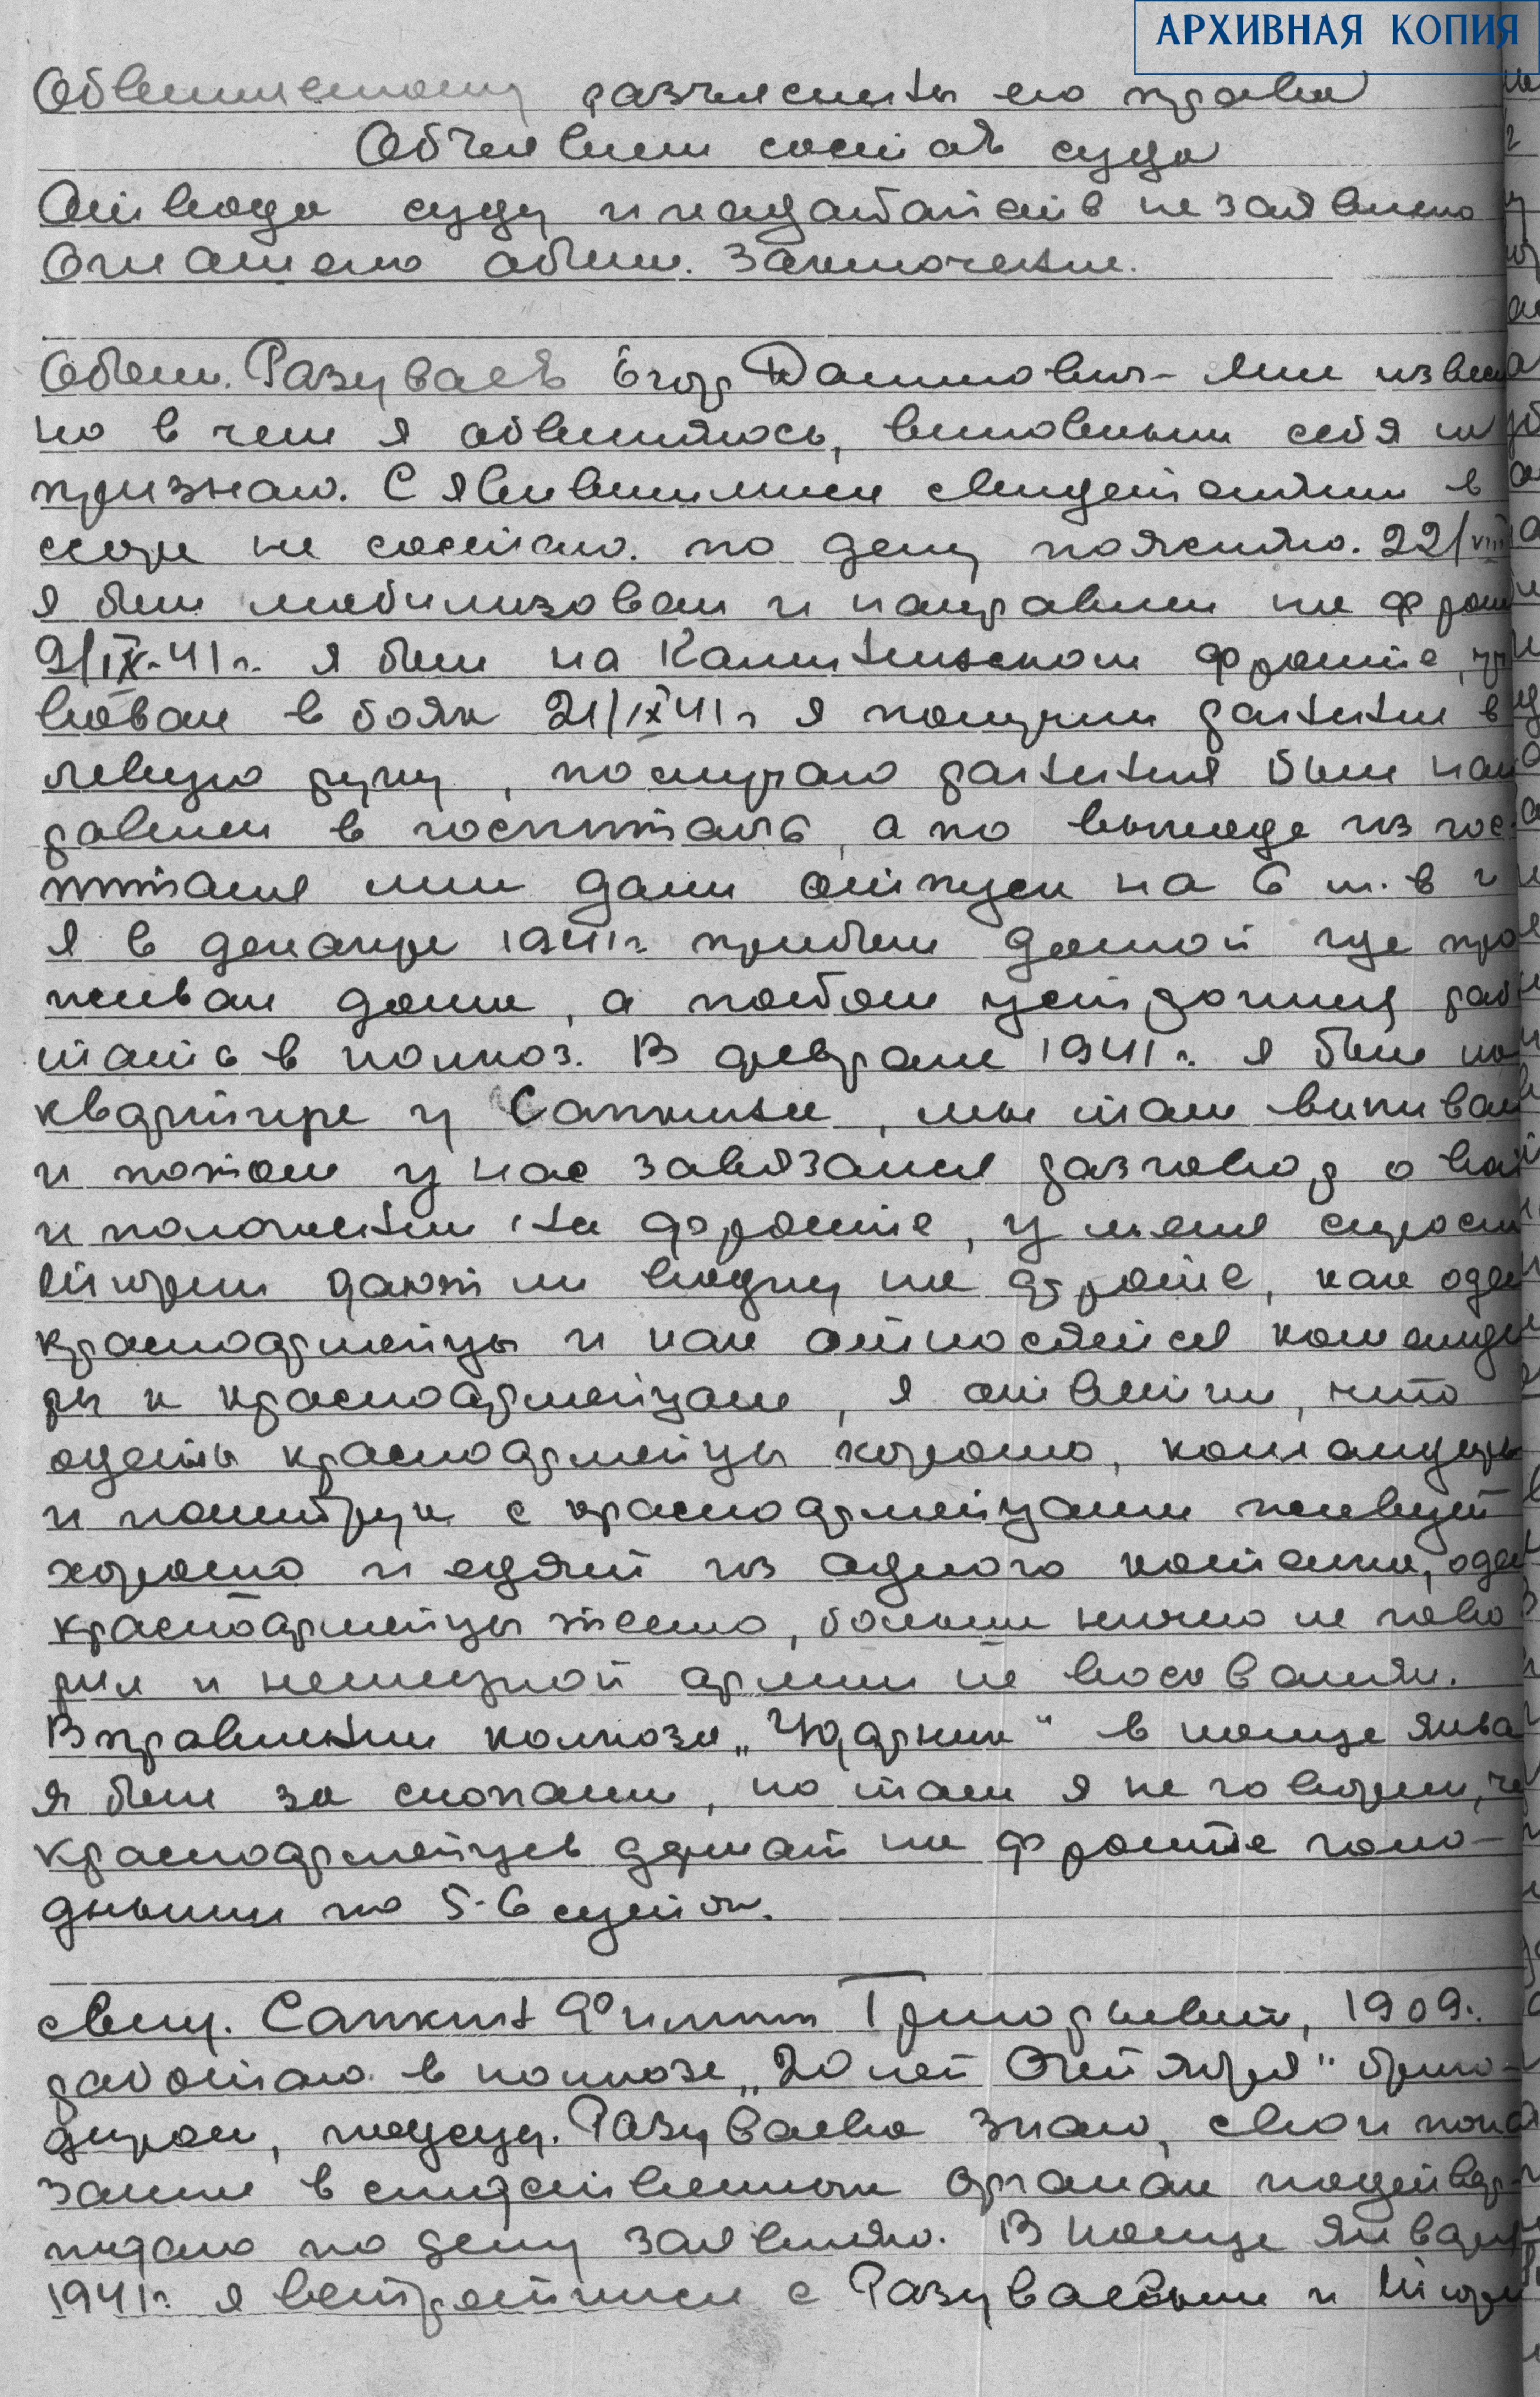 АРХИВНАЯ КОПИЯ
Обвиняемому разъяснены его права
Объявлен состав суда
Отвода суду и ходатайств не заявлено
Оглашено обвин. заключение.
Обвин. Разуваев Егор Данилович - мне извест
но в чем я обвиняюсь, виновным себя не
признаю. С явившимися свидетелями в
ссоре не состою. по делу поясняю. 22/VIII
я был мобилизован и направлен на фрон
9/IX-41 г. я был на Калининском фронте, уч
вовал в боях 21/IX 41 г я получил ранение в
левую руку, по случаю ранения был нап
равлен в госпиталь, а по выходе из гос
питаля мне дали отпуск на 6 м-в и
я в декабре 1941 г. прибыл домой где про
живал дома, а потом устроился рабо
тать в колхоз. В феврале 1941 г. я был на
квартире у Сапкина, мы там выпивали
и потом у нас завязался разговор о вой
и положении на фронте, у меня спросил
Шкорин дают ли водку на фронте, как одеты
красноармейцы и как относятся команди
ры к красноармейцам, я ответил, что
одеты красноармейцы хорошо, командиры
и политрук с красноармейцами живут
хорошо и едят из одного котелка, оде
красноармейцы тепло, больше ничего не гово
рил и немецкой армии не восхвалял.
В правлении колхоза „Ударник" в конце янва
я был за снопами, но там я не говорил, что
красноармейцев держат на фронте голо-
дными по 5-6 суток.
свид. Сапкин Филипп Григорьевич, 1909 г.
работаю в колхозе „20 лет Октября" брига-
диром, подсуд. Разуваева знаю, свои пока
зания в следственных органах подтвер-
ждаю по делу заявляю. В конце января
1941 г. я встретился с Разуваевым и Шкори